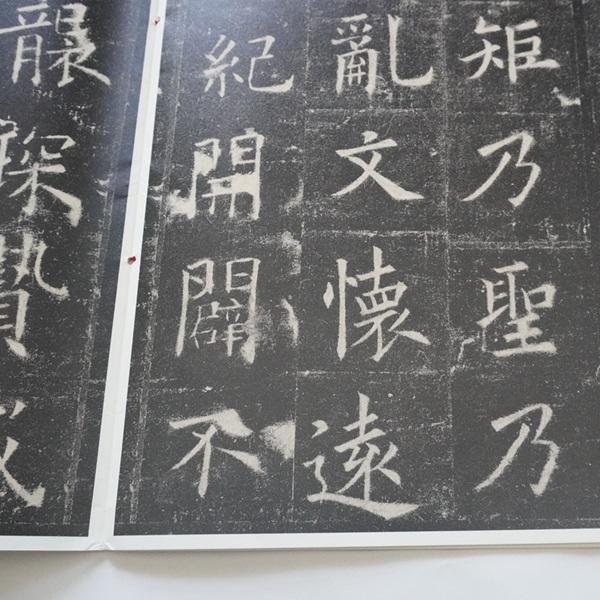 矩乃聖乃
亂文懷遠
紀開闢不
襲琛贄